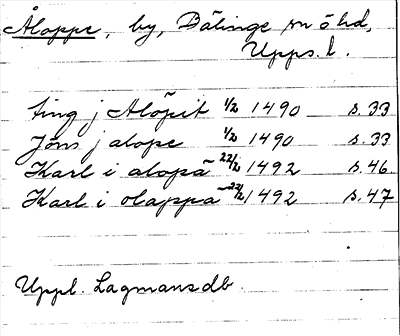 Åloppe, by, Bälinge sn o hd,
Upps. l.
ting j Alöpit 1/2 1490 s. 33
Jöns j alope 1/2 1490 s. 33
Karl i alopä 22/2 1492 s. 46
Karl i olappä 22/2 1492 s. 47
Uppl. Lagmansdb.